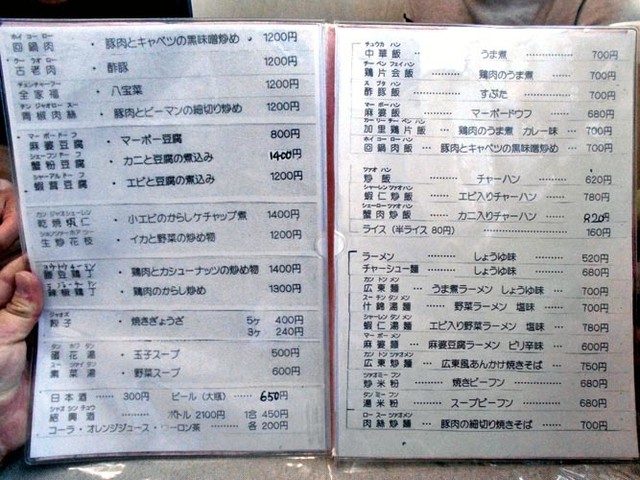 ホイ コー ロー
回鍋肉 ・ 豚肉とキャベツの黒味噌炒め 1200円
クー ラオ ロー
古老肉 ・ 酢豚 1200円
チェンチャーフー
全家福 ・ 八宝菜 1200円
チン ジャオロー スー
青椒肉絲 ・ 豚肉とピーマンの細切り炒め 1200円
マー ボー ドー フ
麻婆豆腐 ・ マーボー豆腐 800円
シェーフン ドー フ
蟹粉豆腐 ・ カニと豆腐の煮込み 1400円
シャーアル ドー フ
蝦茸豆腐 ・ エビと豆腐の煮込み 1200円
カン ジャオシェーレン
乾焼蝦仁 ・ 小エビのからしケチャップ煮 1400円
生炒花枝 ・ イカと野菜の炒め物 1200円
鶏肉とカシューナッツの炒め物 1400円
辣椒鶏丁 ・ 鶏肉のからし炒め 1300円
ジャオズ
餃子 ・ 焼きぎょうざ 5ケ 400円
3ケ 240円
湯 ・ 玉子スープ 500円
湯 ・ 野菜スープ 600円
日本酒 ‥‥ 300円 ビール(大瓶) ‥‥ 650円
紹興酒 ‥‥‥ ボトル 2100円 1合 450円
コーラ・オレンジジュース・ウーロン茶 ‥‥ 各 200円
チュウカ ハン
中華飯 ‥‥‥ うま煮 ‥‥‥ 700円
チー ペン フェイ ハン
鶏片会飯 ‥‥‥ 鶏肉のうま煮 ‥‥‥ 700円
スブタ ハン
酢豚飯 ‥‥‥ すぶた ‥‥‥ 700円
マー ボー ハン
麻婆飯 ‥‥‥ マーボードウフ ‥‥‥ 680円
カーリー チー ペン ハン
加里鶏片飯 ‥‥ 鶏肉のうま煮 カレー味 ‥‥ 700円
ホイ コー ロー ハン
回鍋肉飯 ‥‥ 豚肉とキャベツの黒味噌炒め ‥‥ 700円
ツァオ ハン
炒飯 ‥‥‥ チャーハン ‥‥‥ 620円
シャーレン ツァオ ハン
蝦仁炒飯 ‥‥‥ エビ入りチャーハン ‥‥‥ 780円
シェーロー ツァオ ハン
蟹肉炒飯 ‥‥‥ カニ入りチャーハン ‥‥‥ 820円
ライス (半ライス 80円) ‥‥‥ 160円
ラーメン ‥‥‥ しょうゆ味 ‥‥‥ 520円
チャーシュー麺 ‥‥‥ しょうゆ味 ‥‥‥ 680円
カン トン メン
広東麺 ‥‥‥ うま煮ラーメン しょうゆ味 ‥‥‥ 700円
スー チン タン メン
什錦湯麺 ‥‥‥ 野菜ラーメン 塩味 ‥‥‥ 700円
シャーレン タン メン
蝦仁湯麺 ‥‥‥ エビ入り野菜ラーメン 塩味 ‥‥ 780円
マー ボー メン
麻婆麺 ‥‥‥ 麻婆豆腐ラーメン ピリ辛味 ‥‥ 600円
カン トン ツァオメン
広東炒麺 ‥‥‥ 広東風あんかけ焼きそば ‥‥‥ 750円
ツァオミー フン
炒米粉 ‥‥‥ 焼きビーフン ‥‥‥ 680円
タン ミー フン
湯米粉 ‥‥‥ スープビーフン ‥‥‥ 680円
ロー スー ツァオメン
肉絲炒麺 ‥‥‥ 豚肉の細切り焼きそば ‥‥‥ 700円